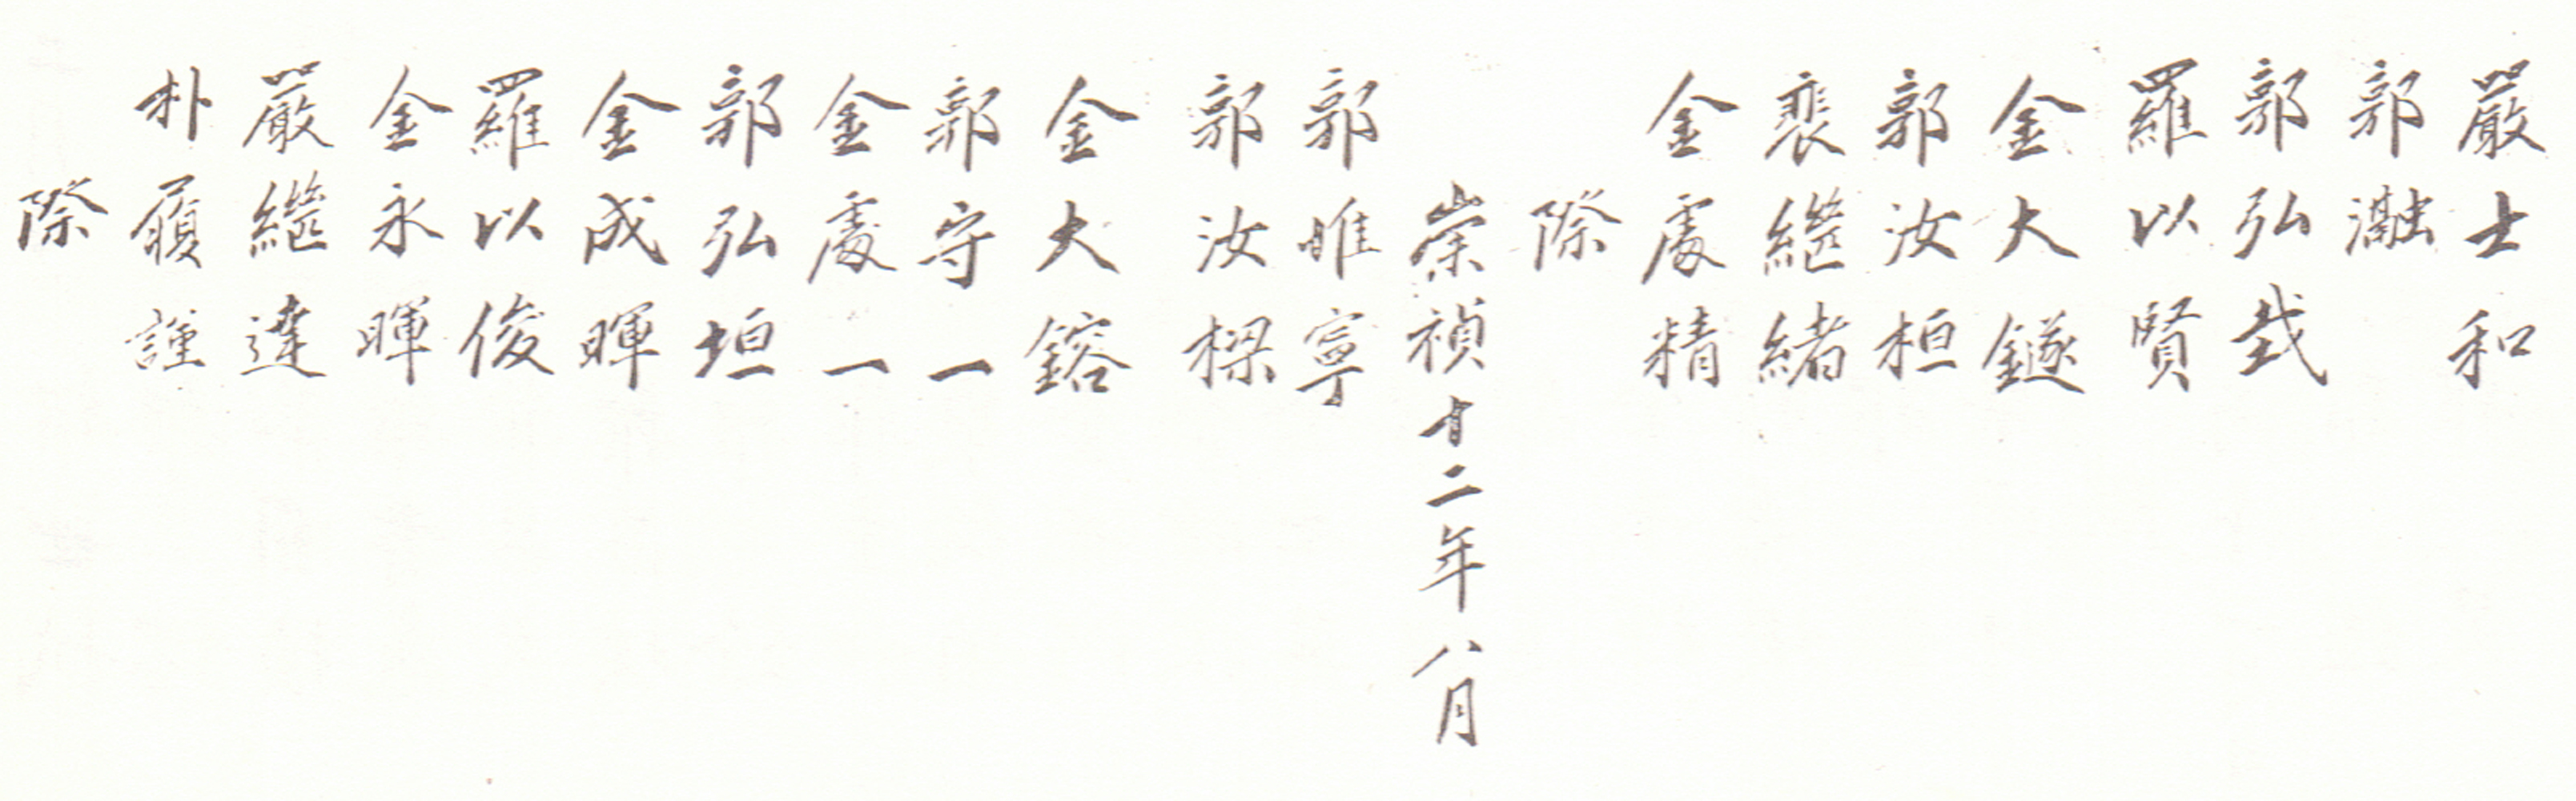 嚴士和
郭瀜
郭弘
羅以賢
金大鐩
郭汝桓
裴繼緖
金處精
際
崇禎十二年八月
郭惟寧
郭汝樑
金大鎔
郭守一
金處一
郭弘垣
金成暉
羅以俊
金永暉
嚴繼達
朴履謹
際